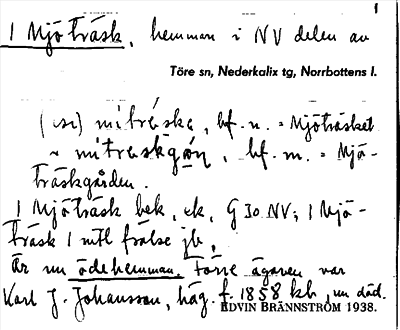 1
1 Mjöträsk, hemman i NV delen av
Töre sn, Nederkalix tg, Norrbottens l.
mitréske, bf. n. = Mjöträsket
~ mitreskgån, bf. m. = Mjö-
träskgården.
1 Mjöträsk bek, ek, G Io NV; 1 Mjö-
träsk 1 mtl frälse jb,
Är nu ödehemman. Förre ägaren var
Karl J. Johansson, häg. f. 1858 kb, nu död.
EDVIN BRÄNNSTRÖM 1938.